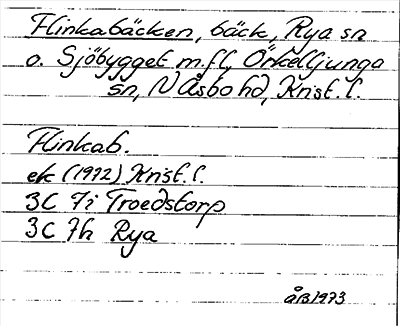 Flinkabäcken, bäck, Rya sn
o. Sjöbygget m.fl, Örkelljunga
sn, N Åsbo hd, Krist. l.
Flinkab.
ek (1972) Krist. l.
3C 7i Troedstorp
3C 7h Rya
åB 1973